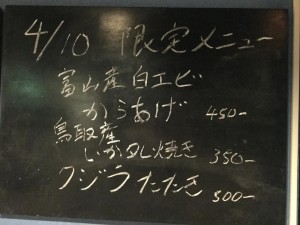 4/10 限定メニュー
富山産白エビ
からあげ 450-
鳥取産
いか丸し焼き 350-
クジラたたき 500-